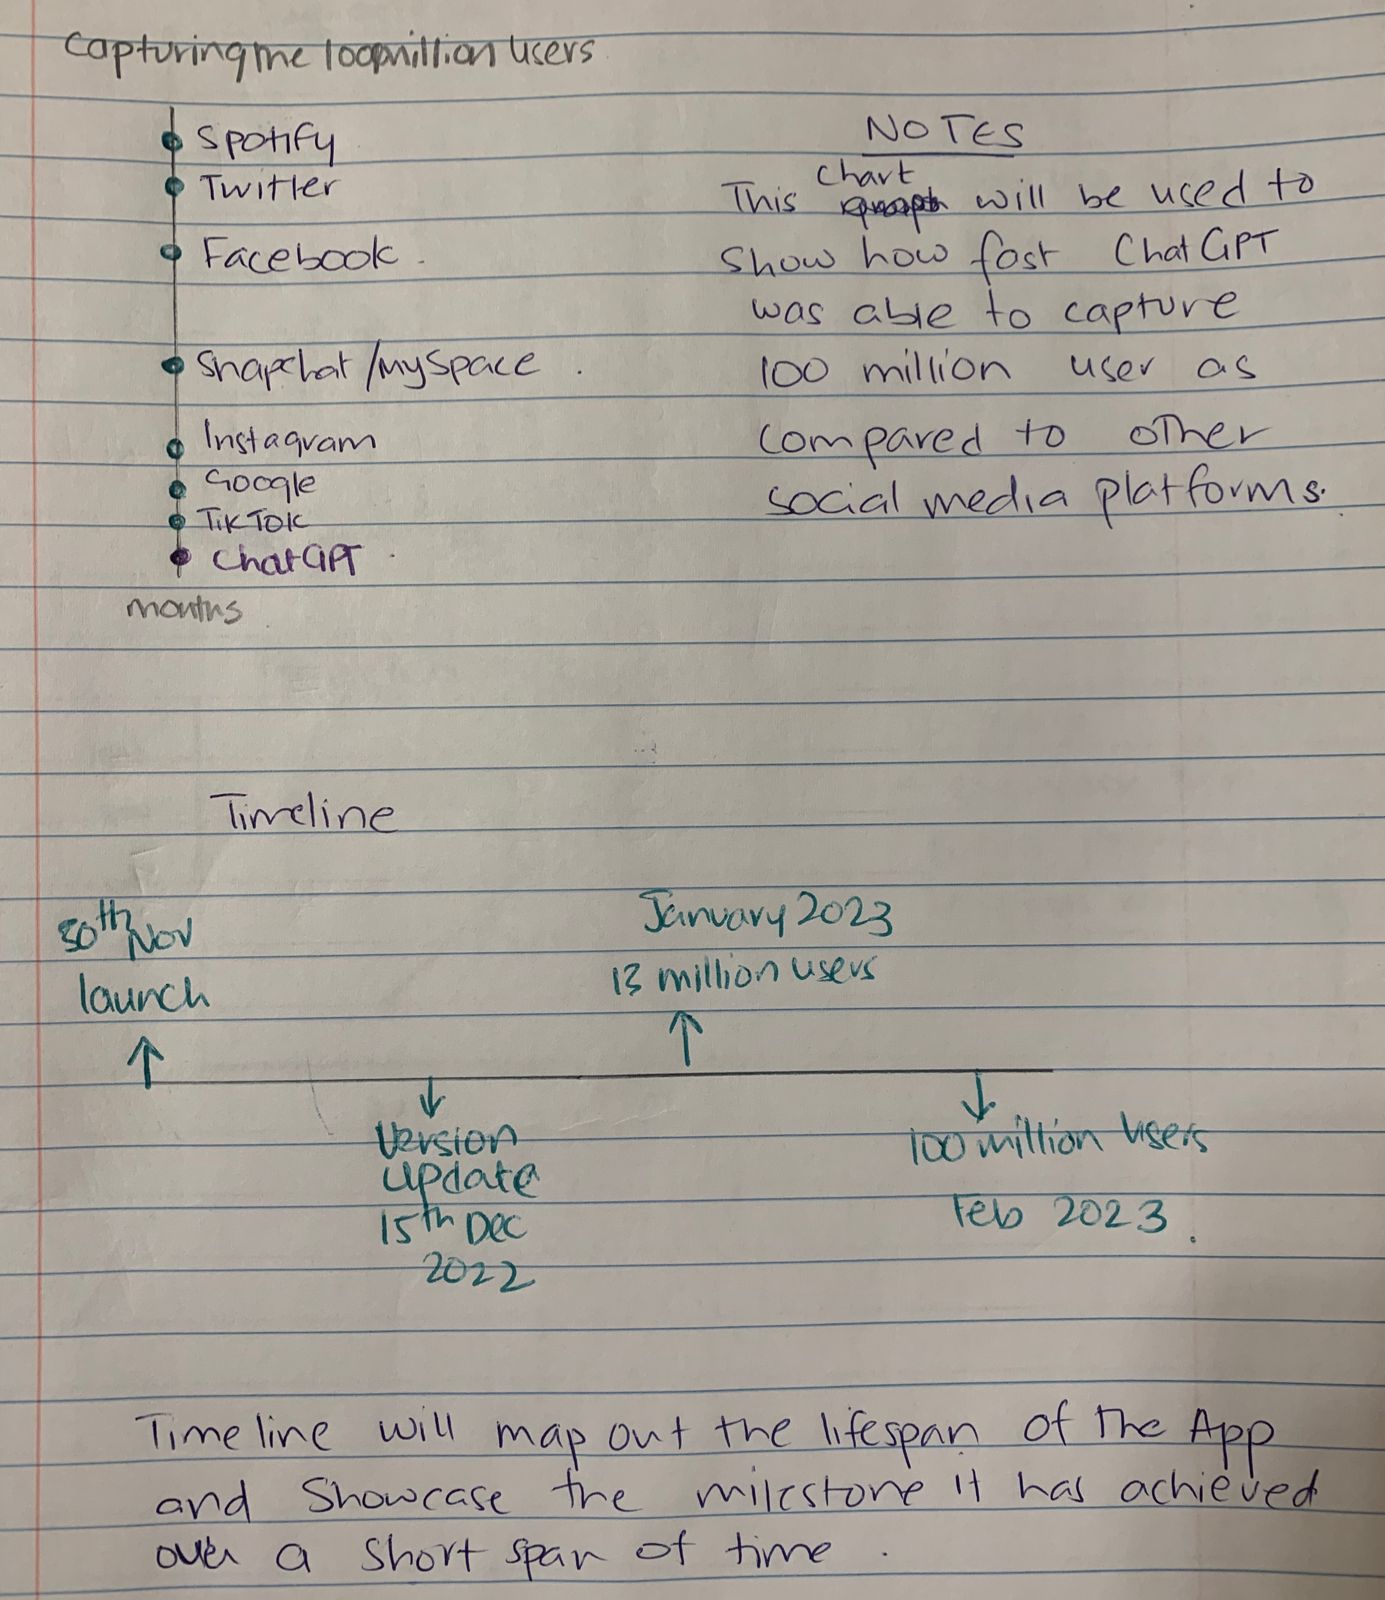 Capturing the 100 million users
Spotify
Twitter
Facebook.
Snapchat/MySpace.
Instagram
Google
TikTok
ChatGPT.
months
NOTES
This chart will be used to
Show how fast ChatGPT
was able to capture
100 million user as
compared to other
social media platforms.
Timeline
30th Nov
launch
January 2023
13 million users
Version
update
15th Dec
2022
100 million users
Feb 2023.
Timeline will map out the lifespan of the App
and Showcase the milestone it has achieved
over a short span of time.